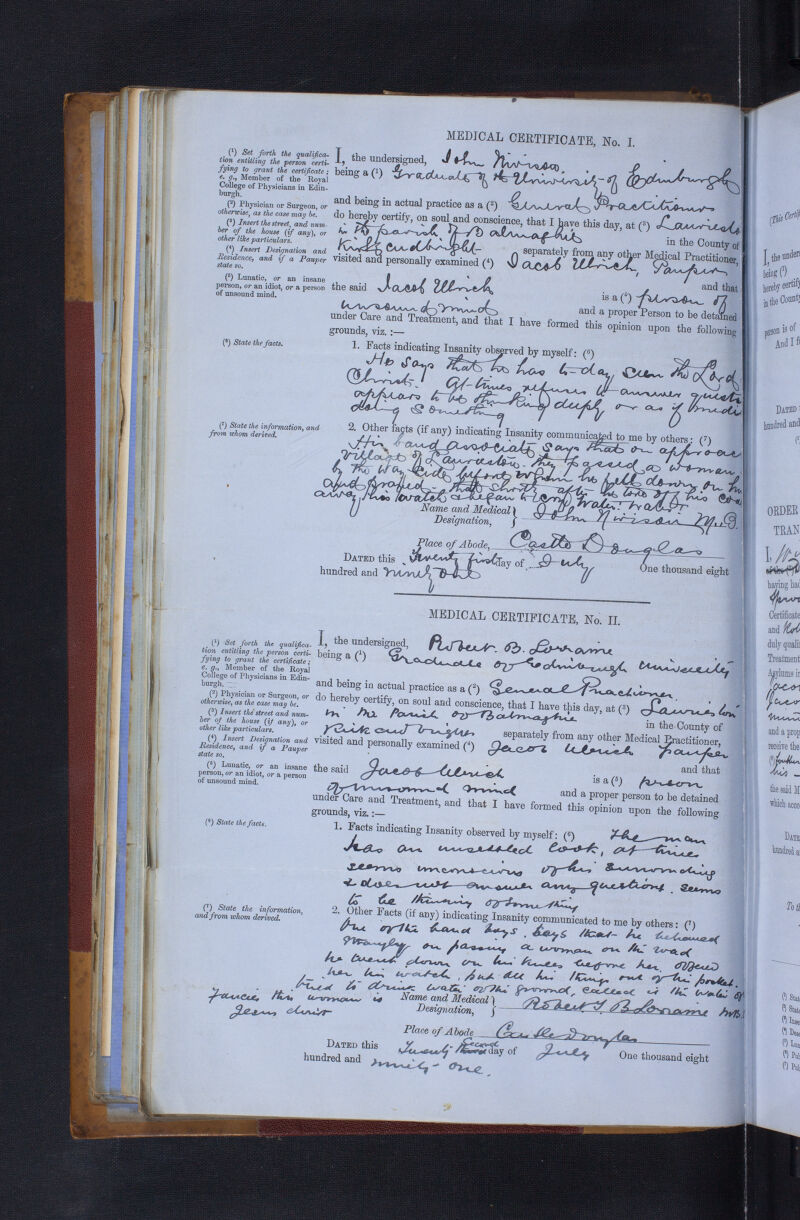 MEDICAL CERTIFICATE, No. I.
(¹) Set forth the qualifica-
tion entitling the person certi-
fying to grant the certificate;
e. g., Member of the Royal
College of Physicians in Edin-
burgh.
I, the undersigned, John Nivison
being a (¹) Graduate of the University of Edinburgh
(²) Physician or Surgeon, or
otherwise, as the case may be.
and being in actual practice as a (²) General Practitioner
(³) Insert the street, and num-
ber of the house (if any), or
other like particulars.
do hereby certify, on soul and conscience, that I have this day, at (³) Laurieston
in the parish of Balmaghie in the County of
(⁴) Insert Designation and
Residence, and if a Pauper
state so.
Kirkcudbright separately from any other Medical Practitioner,
visited and personally examined (⁴) Jacob Ullrich, Pauper
(⁵) Lunatic, or an insane
person, or an idiot, or a person
of unsound mind.
and that
the said Jacob Ullrich is a (⁵) person of
unsound mind and a proper Person to be detained
under Care and Treatment, and that I have formed this opinion upon the following
grounds, viz. :—
(⁶) State the facts.
1. Facts indicating Insanity observed by myself: (⁶)
He says that he has to-day seen the Lord
Christ. At times refuses to answer quest
appears to be thinking deeply or as if
2. Other facts (if any) indicating Insanity communicated to me by others: (⁷)
(⁷) State the information, and
from whom derived.
His band associate says that on approac
village of Laurieston they passed a woman
by the way side before whom he fell down on
and prayed that after he took off his coa
away his watch & began to cry Water! Water
Name and Medical Designation, John Nivison M.D.
Place of Abode, Castle Douglas
DATED this Twenty first day of July One thousand eight
hundred and ninety one
MEDICAL CERTIFICATE, No. II.
(¹) Set forth the qualifica-
tion entitling the person certi-
fying to grant the certificate;
e. g., Member of the Royal
College of Physicians in Edin-
burgh.
I, the undersigned, Robert. B. Lorraine
being a (¹) Graduate of Edinburgh University
(²) Physician or Surgeon, or
otherwise, as the case may be.
and being in actual practice as a (²) General Practioner
(³) Insert the street and num-
ber of the house (if any), or
other like particulars.
do hereby certify, on soul and conscience, that I have this day, at (³) Laurieston
in the Parish of Balmaghie in the County of
(⁴) Insert Designation and
Residence, and if a Pauper
state so.
separately from any other Medical Practitioner,
visited and personally examined (⁴) Jacob Ullrich pauper
(⁵) Lunatic, or an insane
person, or an idiot, or a person
of unsound mind.
and that
the said Jacob Ullrich is a (⁵) person
of unsound mind and a proper person to be detained
under Care and Treatment, and that I have formed this opinion upon the following
grounds, viz. :—
(⁶) State the facts.
1. Facts indicating Insanity observed by myself: (⁶) The man
has an unsettled look, at times
seems unconscious of his surrounding
& does not answer any questions. seems
to be thinking of something
(⁷) State the information,
and from whom derived.
2. Other Facts (if any) indicating Insanity communicated to me by others: (⁷)
One of the band boys. says that he behaved
strangely on passing a woman on the road
he went down on his knees before her, offered
her his watch, put all his things out of his pocket.
tried to drink water of the ground, called is the water of
Fancies this woman is
Jesus christ
Name and Medical Designation, Robert B Lorraine MB.
Place of Abode Castle Douglas
DATED this Twenty Second day of July One thousand eight
hundred and ninety - one.
(This Certif
I, the under
being (¹)
hereby certify
in the Count
person is of
And I f
DATED
hundred and
ORDER
TRAN
I,
having ha
Certificate
and
duly quali
Treatment
Asylums i
and a prop
receive the
his
the said M
which acco
DATE
hundred a
To th
(¹) Stat
(²) Stat